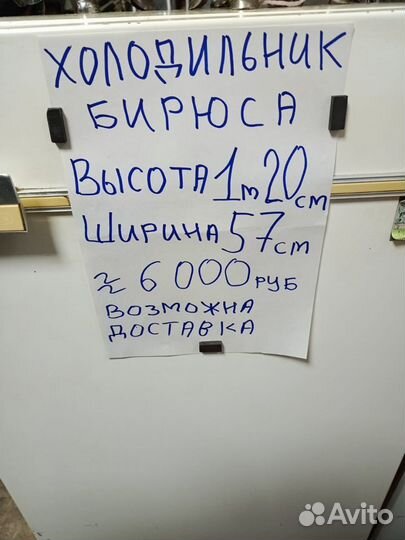 ХОЛОДИЛЬНИК
БИРЮСА
ВЫСОТА 1m 20cm
ШИРИНА 57cm
≈ 6 000 РУБ
ВОЗМОЖНА
ДОСТАВКА
Avito